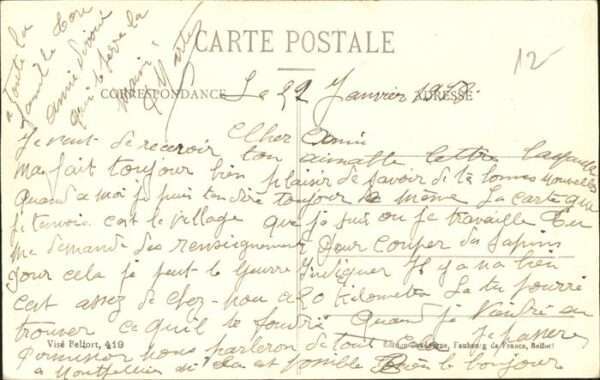 à toute la
famille
amie
qui te serre la
main
CARTE POSTALE
12-
CORRESPONDANCE
ADRESSE
Le 22 Janvier
Cher Amie
Je vient de recevoir ton aimable lettre laquelle
ma fait toujour bien plaisir de savoir de tè bonnes nouvelles
Quand a moi je puis ten dire toujour le même La carte que
je tenvoie cest le village que je suis ou je travaille Tu
me demande des renseignement pour couper des sapins
pour cela je peut te Indiquer Il y a na bien
cest assez de chez-nou a 10 kilometre La tu pourré
trouver ce quil te foudré Quand je viendré en
permission nous parleron de tout je passeré
a Montpellier si sa est posible bonjour
Visé Belfort, 419
Faubourg de France, Belfort